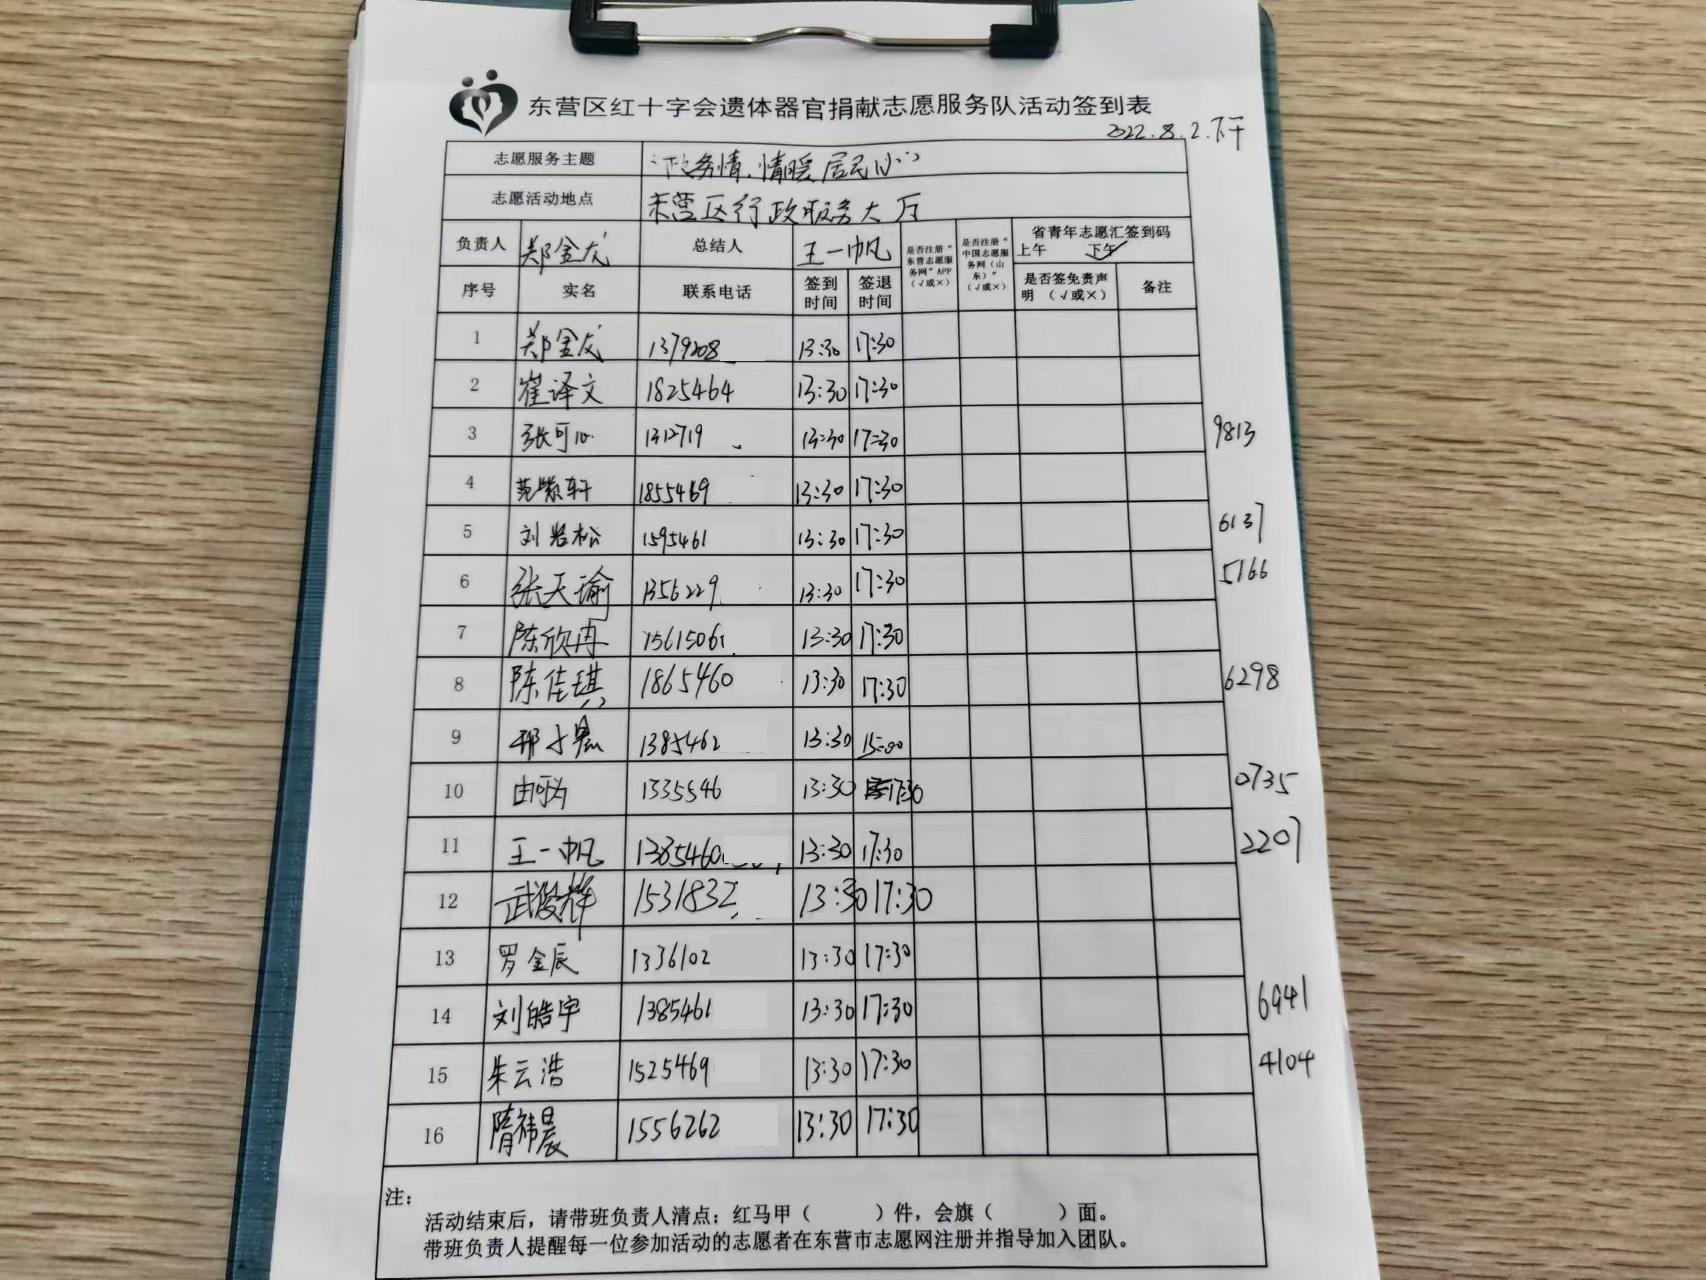 东营区红十字会遗体器官捐献志愿服务队活动签到表
2022.8.2.下午
志愿服务主题 “政务情,情暖居民心”
志愿活动地点 东营区行政服务大厅
负责人 郑金龙 总结人 王一帆 是否注册“东营志愿服务网”APP（√或×） 是否注册“中国志愿服务网（山东）”（√或×） 省青年志愿汇签到码 上午 下午√
序号 实名 联系电话 签到时间 签退时间 是否签免责声明（√或×） 备注
1 郑金龙 1379208 13:30 17:30
2 崔译文 1825464 13:30 17:30
3 张可心 1312719 13:30 17:30 9813
4 范紫轩 1855469 13:30 17:30
5 刘岩松 1595461 13:30 17:30 6137
6 张天瑜 1356229 13:30 17:30 5166
7 陈欣冉 15615061 13:30 17:30
8 陈佳琪 1865460 13:30 17:30 6298
9 1385462 13:30 15:00
10 1335546 13:30 17:30 0735
11 王一帆 1385460 13:30 17:30 2207
12 武俊辉 1531832 13:30 17:30
13 罗金辰 1336102 13:30 17:30
14 刘皓宇 1385461 13:30 17:30 6941
15 朱云浩 1525469 13:30 17:30 4104
16 隋祎晨 1556262 13:30 17:30
注：
活动结束后，请带班负责人清点：红马甲（ ）件，会旗（ ）面。
带班负责人提醒每一位参加活动的志愿者在东营市志愿网注册并指导加入团队。